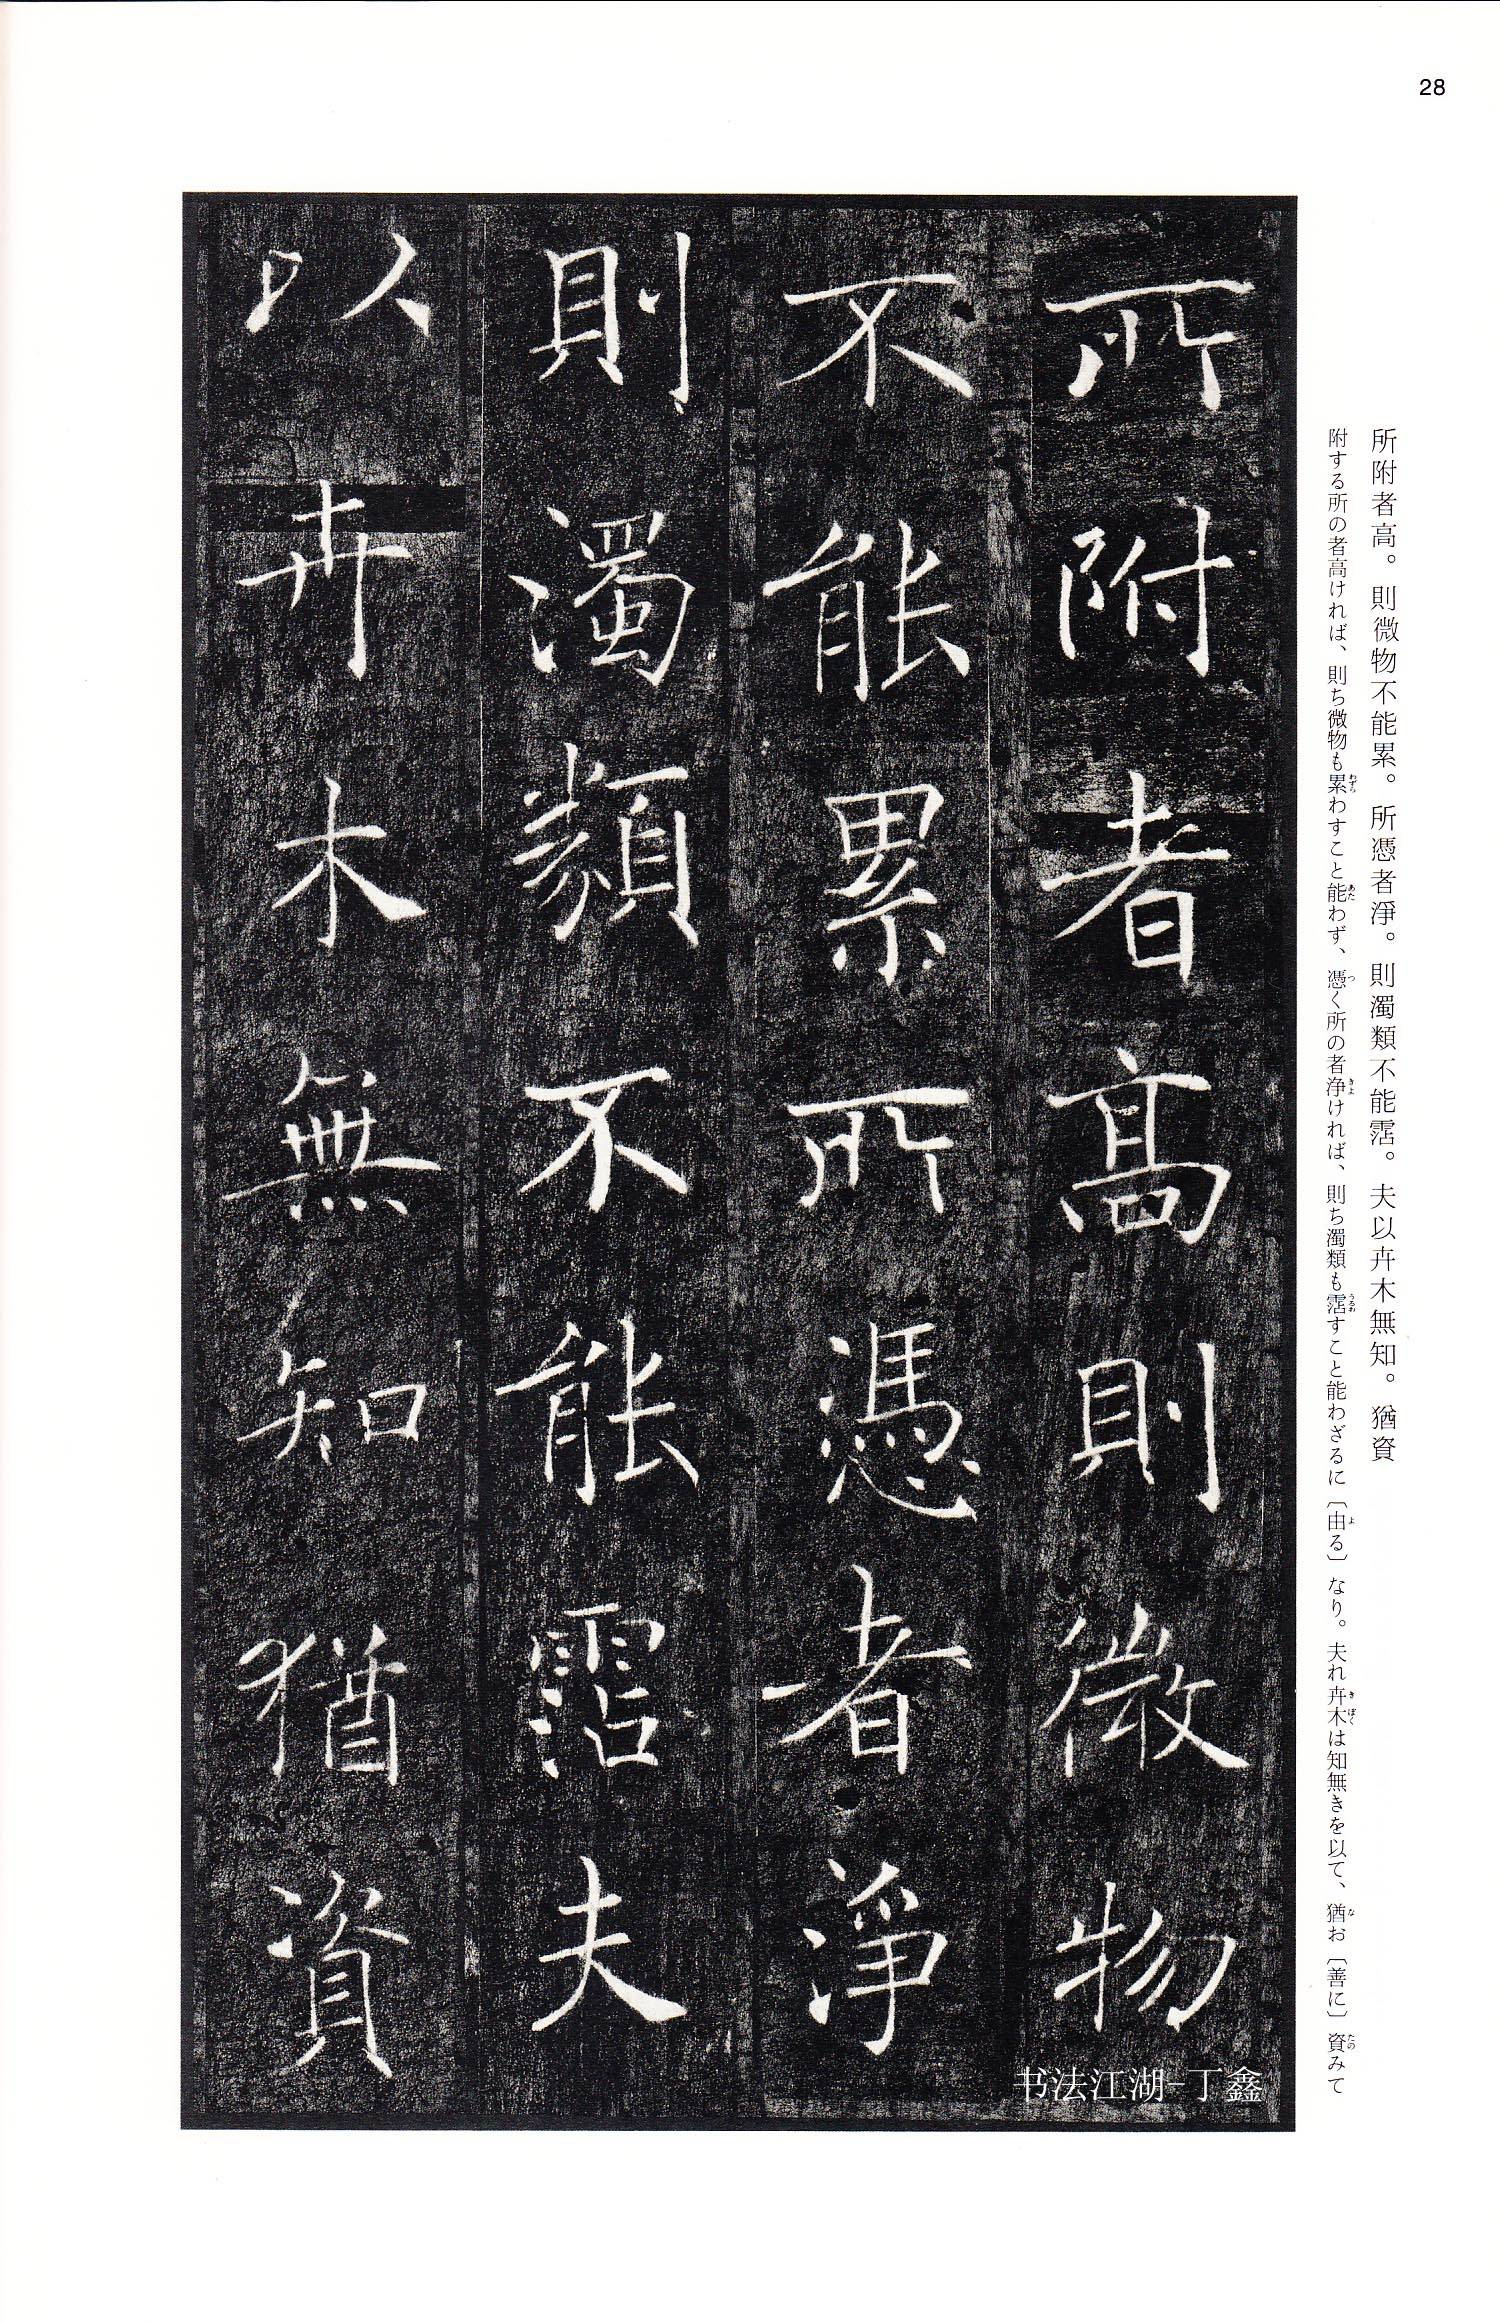 28
所附者高。則微物不能累。所憑者淨。則濁類不能霑。夫以卉木無知。猶資
附する所の者高ければ、則ち微物も累わすこと能わず、憑く所の者浄ければ、則ち濁類も霑すこと能わざるに〔由る〕なり。夫れ卉木は知無きを以て、猶お〔善に〕資みて
所附者高則微物
不能累所憑者淨
則濁類不能霑夫
以卉木無知猶資
书法江湖-丁鑫